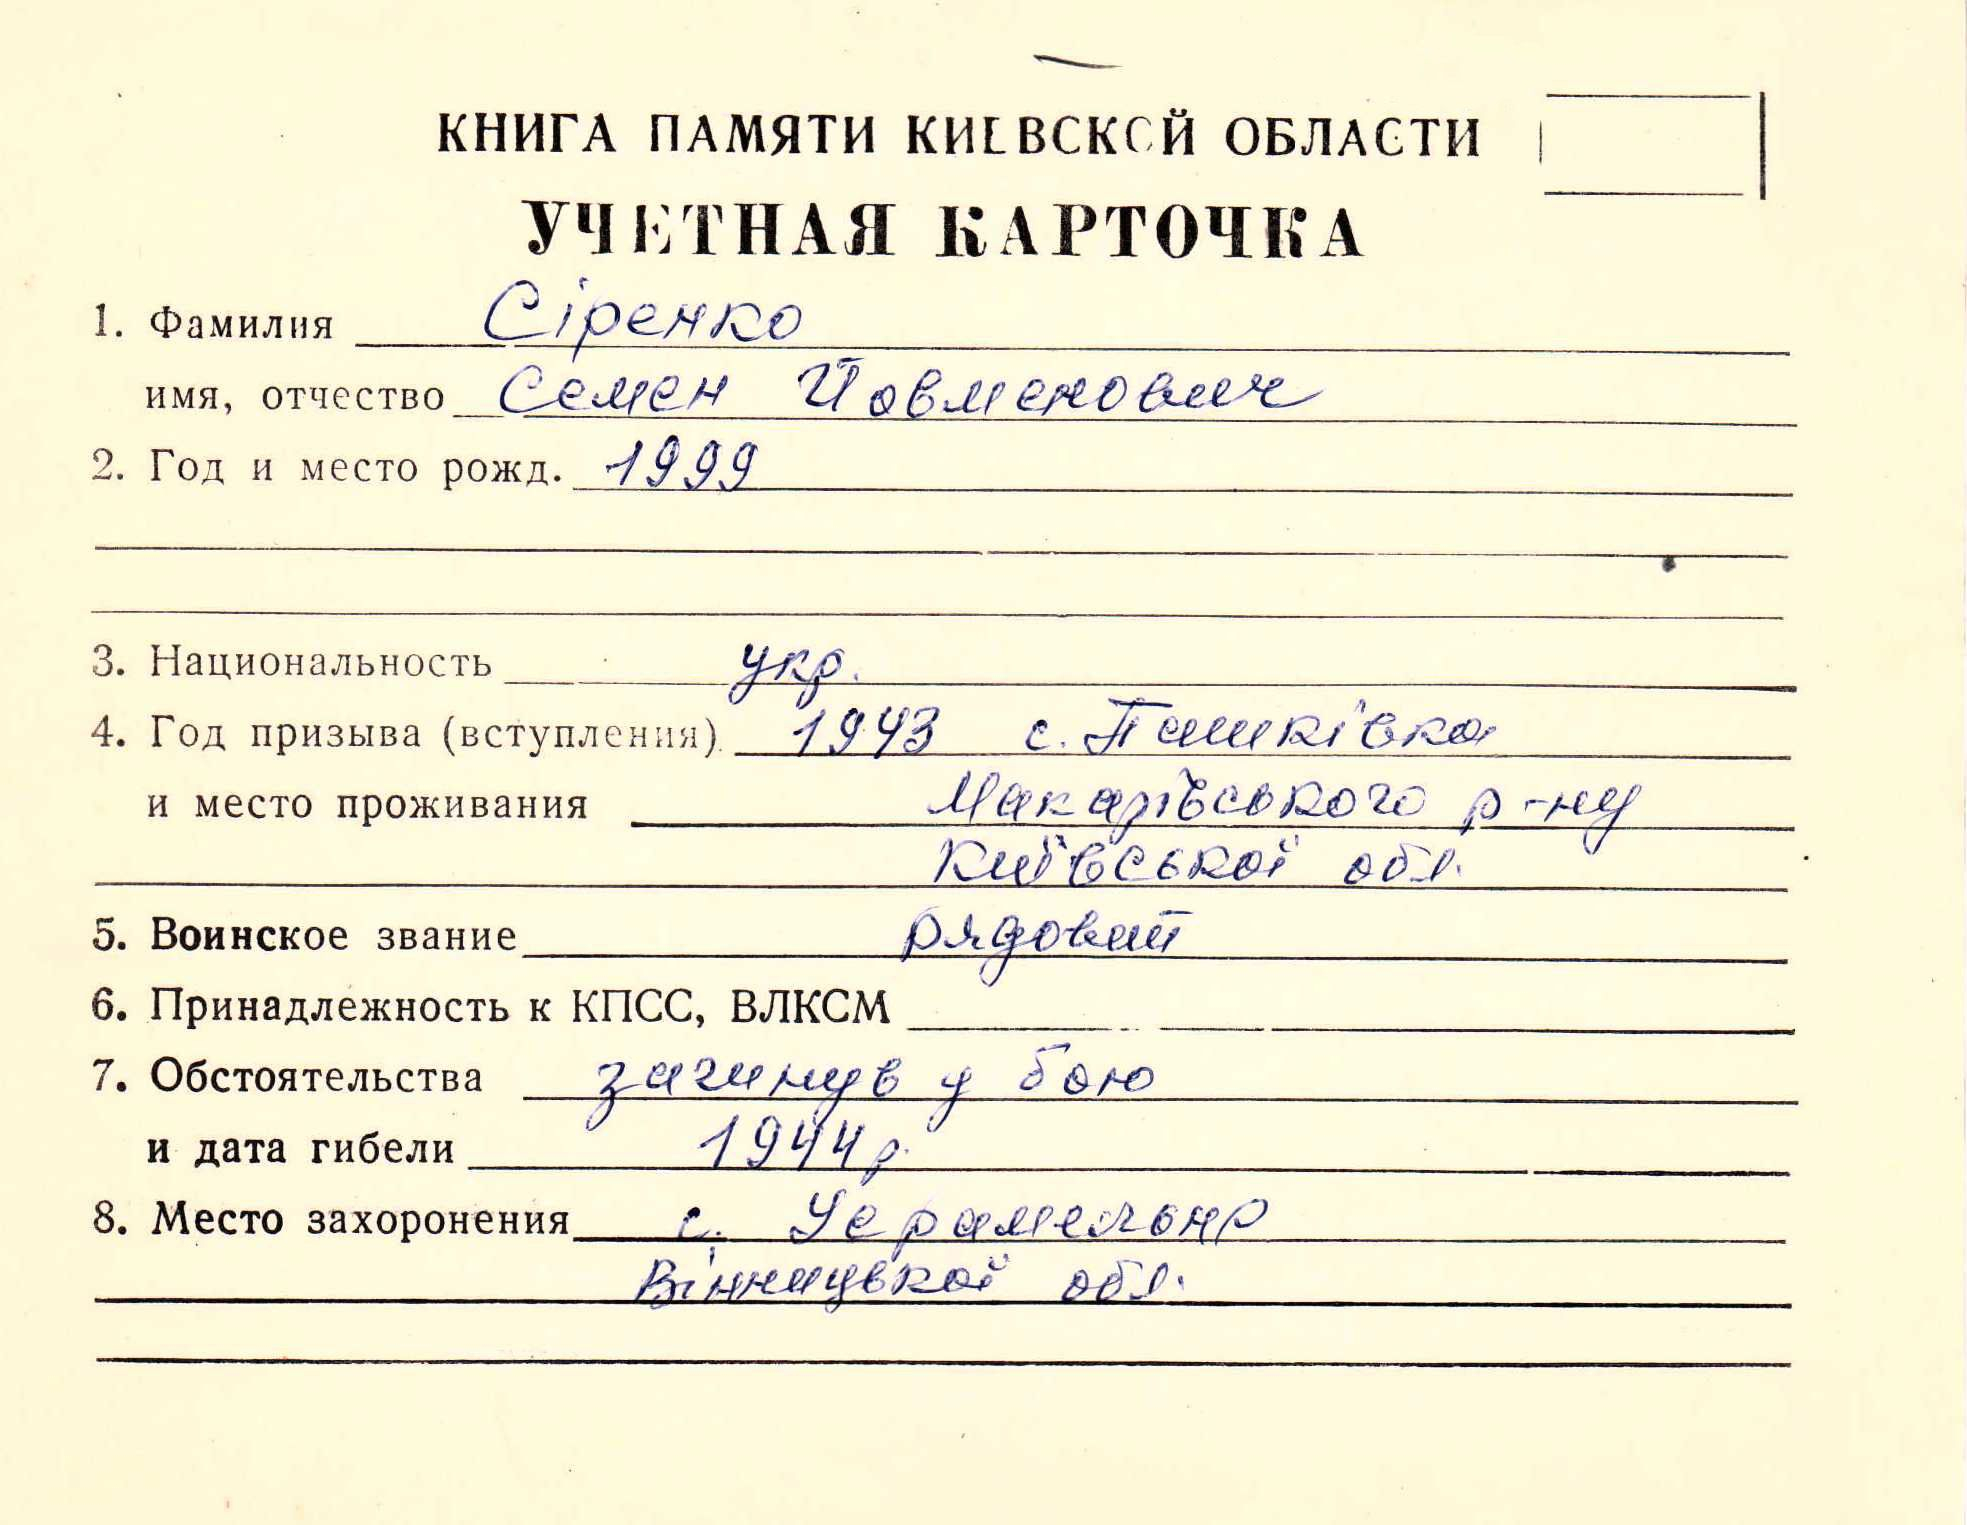 КНИГА ПАМЯТИ КИЕВСКОЙ ОБЛАСТИ
УЧЕТНАЯ КАРТОЧКА
1. Фамилия Сіренко
имя, отчество Семен Йовменович
2. Год и место рожд. 1999
3. Национальность укр.
4. Год призыва (вступления) 1943 с. Пашківка
и место проживания Макарівського р-ну
Київської обл.
5. Воинское звание рядовий
6. Принадлежность к КПСС, ВЛКСМ
7. Обстоятельства загинув у бою
и дата гибели 1944 р.
8. Место захоронения с.
Вінницької обл.